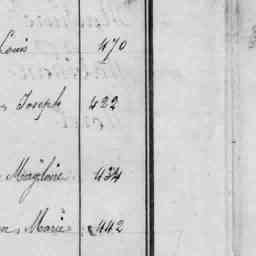 Louis 470
, Joseph 422
Magloire 434
n, Marie 442